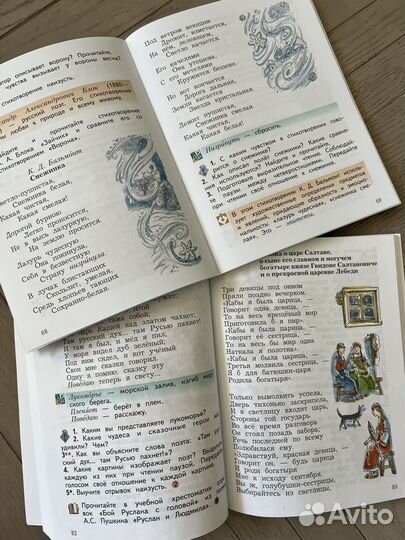 тор описывает ворону? Прочитайте.
чувства вызывает у вороны весна?
стихотворение наизусть.
Александрович Блок (1880—
русский поэт. Его стихотворения
любви к природе и всему живому.
и прочитайте стихотворение
А. Блока «Зимой» и сравните его со
стихотворением «Ворона».
К. Д. Бальмонт
Снежинка
Светло-пушистая,
Снежинка белая,
Какая чистая,
Какая смелая!
Дорогой бурною
Легко проносится,
Не в высь лазурную,
На землю просится.
Лазурь чудесную
Она покинула,
Себя в безвестную
Страну низринула.
В лучах блистающих
Скользит, умелая,
Средь хлопьев тающих
Сохранно-белая.
68
Под ветром веющим
Дрожит, взметается,
На нём, лелеющем,
Светло качается.
Его качелями
Она утешена,
С его метелями
Кружится бешено.
Но вот кончается
Дорога дальная,
Земли касается
Звезда кристальная.
Лежит пушистая,
Снежинка смелая.
Какая чистая,
Какая белая!
Низринуть — сбросить.
1. С каким чувством в стихотворении
Как описан полёт снежинки?
3. Подготовьте выразительное чтение.
при чтении своё отношение к снежинке.
В этом стихотворении К. Д. Бальмонт
зует художественные определения предметов
явлений: «лазурь чудесная», «снежинка
лая». Это — эпитеты.
69
Там царь Кащей над златом чахнет;
Там русский дух... там Русью пахнет!
И там я был, и мёд я пил;
У моря видел дуб зелёный;
Под ним сидел, и кот учёный
Свои мне сказки говорил.
Одну я помню: сказку эту
Поведаю теперь я свету...
Лукоморье — морской залив, изгиб морского берега.
Пленён — берёт в плен.
Поведаю — расскажу.
1. Каким вы представляете лукоморье?
2. Какие чудеса и сказочные герои вас
удивили? Чем?
3*. Как вы объясните слова поэта: «Там русский дух... там Русью пахнет!»?
4. Какие картины изображает поэт?
каждую из них при чтении паузой. Передайте
голосом своё отношение к каждой картине.
5*. Выучите отрывок наизусть.
Прочитайте в учебной хрестоматии отрывок «Бой Руслана с головой» из поэмы
А.С. Пушкина «Руслан и Людмила».
82
о царе Салтане,
о сыне его славном и могучем
богатыре князе Гвидоне Салтановиче
и о прекрасной царевне Лебеди
Три девицы под окном
Пряли поздно вечерком.
«Кабы я была царица, —
Говорит одна девица, —
То на весь крещёный мир
Приготовила б я пир».
«Кабы я была царица, —
Говорит её сестрица, —
То на весь бы мир одна
Наткала я полотна».
«Кабы я была царица, —
Третья молвила сестрица, —
Я б для батюшки-царя
Родила богатыря».
Только вымолвить успела,
Дверь тихонько заскрипела,
И в светлицу входит царь,
Стороны той государь.
Во всё время разговора
Он стоял позадь забора;
Речь последней по всему
Полюбилася ему.
«Здравствуй, красная девица, —
Говорит он, — будь царица
И роди богатыря
Мне к исходу сентября.
Вы ж, голубушки-сестрицы,
Выбирайтесь из светлицы,
83
Avito